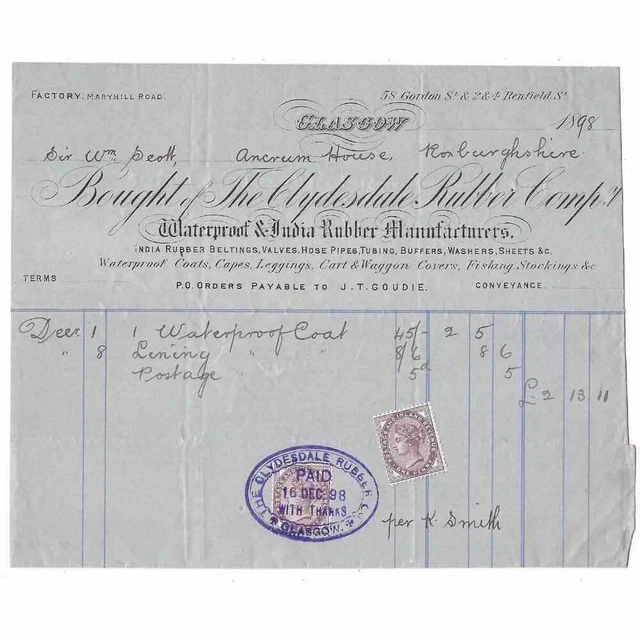 FACTORY. MARYHILL ROAD. 58 Gordon St & 2 & 4 Renfield St
GLASGOW 1898
Sir Wm Scott, Ancrum House, Roxburghshire
Bought of The Clydesdale Rubber Compy
Waterproof & India Rubber Manufacturers.
INDIA RUBBER BELTINGS, VALVES, HOSE PIPES, TUBING, BUFFERS, WASHERS, SHEETS &c
Waterproof Coats, Capes, Leggings, Cart & Waggon Covers, Fishing Stockings &c
TERMS P.O. ORDERS PAYABLE TO J.T. GOUDIE. CONVEYANCE.
Decr 1 1 Waterproof Coat 45/- 2 5
" 8 Lining " " 8/6 8 6
Postage 5d 5
£ 2 13 11
THE CLYDESDALE RUBBER Co
PAID
16 DEC. 98
WITH THANKS
GLASGOW.
per K. Smith